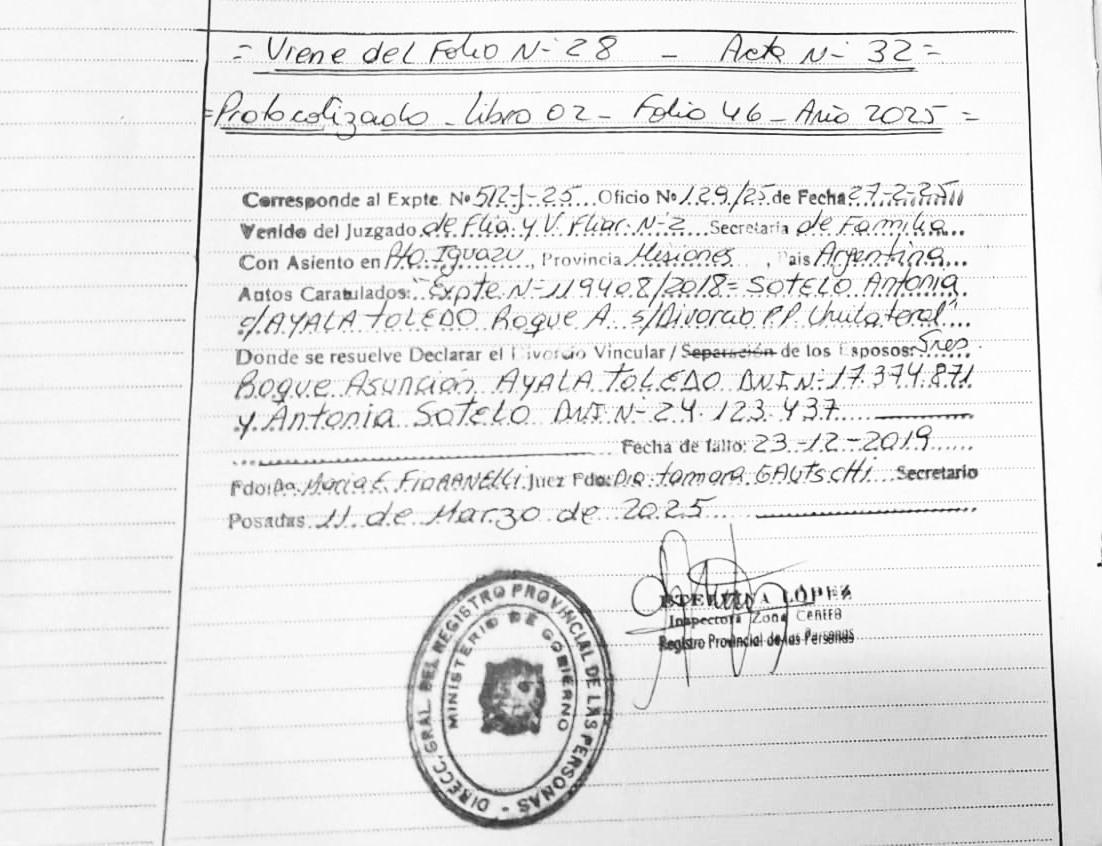 = Viene del Folio N- 28 - Acta N- 32 =
= Protocolizado - Libro 02 - Folio 46 - Año 2025 =
Corresponde al Expte. Nº 512-J-25 Oficio Nº 129/25 de Fecha 27-2-25
Venido del Juzgado de Flia. y V. Fliar. N-2 Secretaria de Familia
Con Asiento en Pto. Iguazu, Provincia Misiones, Pais Argentina
Autos Caratulados: "Expte. N-119408/2018= SOTELO Antonia
c/ AYALA TOLEDO Roque A. s/Divorcio P.P. Unilateral"
Donde se resuelve Declarar el Divorcio Vincular / Separación de los Esposos: Sres.
Roque Asunción AYALA TOLEDO DNI N-17.374.871
y Antonia SOTELO DNI N-24.123.437
Fecha de fallo: 23-12-2019
Fdo: Dra. Maria E. FIORANELLI Juez Fdo: Dra. Tamara GAUTSCHI Secretario
Posadas 11 de Marzo de 2025
DIRECC. GRAL. DEL REGISTRO PROVINCIAL DE LAS PERSONAS -
MINISTERIO DE GOBIERNO
LÓPEZ
Inspectora Zona Centro
Registro Provincial de las Personas